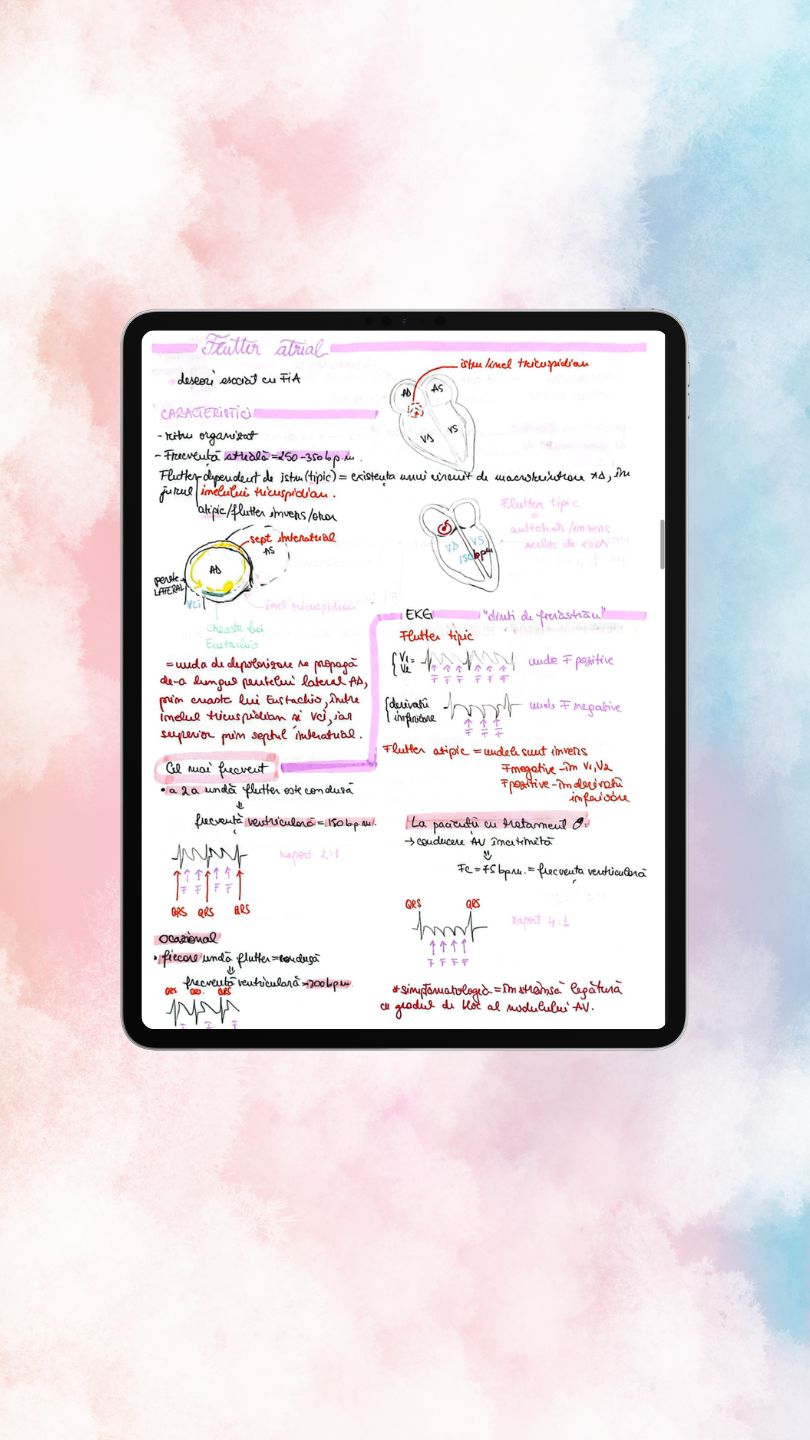 Flutter atrial
deseori asociat cu FiA
istm/inel tricuspidian
AD
AS
VD
VS
CARACTERISTICI
- ritm organizat
- Frecvență atrială = 250-350 bpm.
Flutter-dependent de istm (tipic) = existența unui circuit de macroreintrare AD, în
jurul inelului tricuspidian.
atipic/flutter invers/orar
sept interatrial
AS
AD
perete
LATERAL
VCI
inel tricuspidian
creasta lui
Eustachio
Flutter tipic
=
antiorar/invers
acelor de ceas
VD
VS
150bpm
= unda de depolarizare se propagă
de-a lungul peretelui lateral AD,
prin creasta lui Eustachio, între
inelul tricuspidian și VCI, iar
superior prin septul interatrial.
EKG "dinți de fierăstrău"
Flutter tipic
V1
V2
=
F F F F F
unde F pozitive
derivații
inferioare
F F F
unde F negative
Flutter atipic = undele sunt invers
F negative - în V1, V2
F pozitive - în derivații
inferioare
Cel mai frecvent
• a 2a undă flutter este condusă
⇓
frecvență ventriculară = 150 bpm.
raport 2:1
F F F F
QRS QRS QRS
ocazional
• fiecare undă flutter = condusă
⇓
frecvență ventriculară = 300 bpm.
QRS QRS QRS
F F F
La pacienții cu tratament
→ conducere AV încetinită
⇓
FC = 75 bpm. = frecvența ventriculară
QRS QRS
raport 4:1
F F F F
* simptomatologia = în strânsă legătură
cu gradul de bloc al nodulului AV.